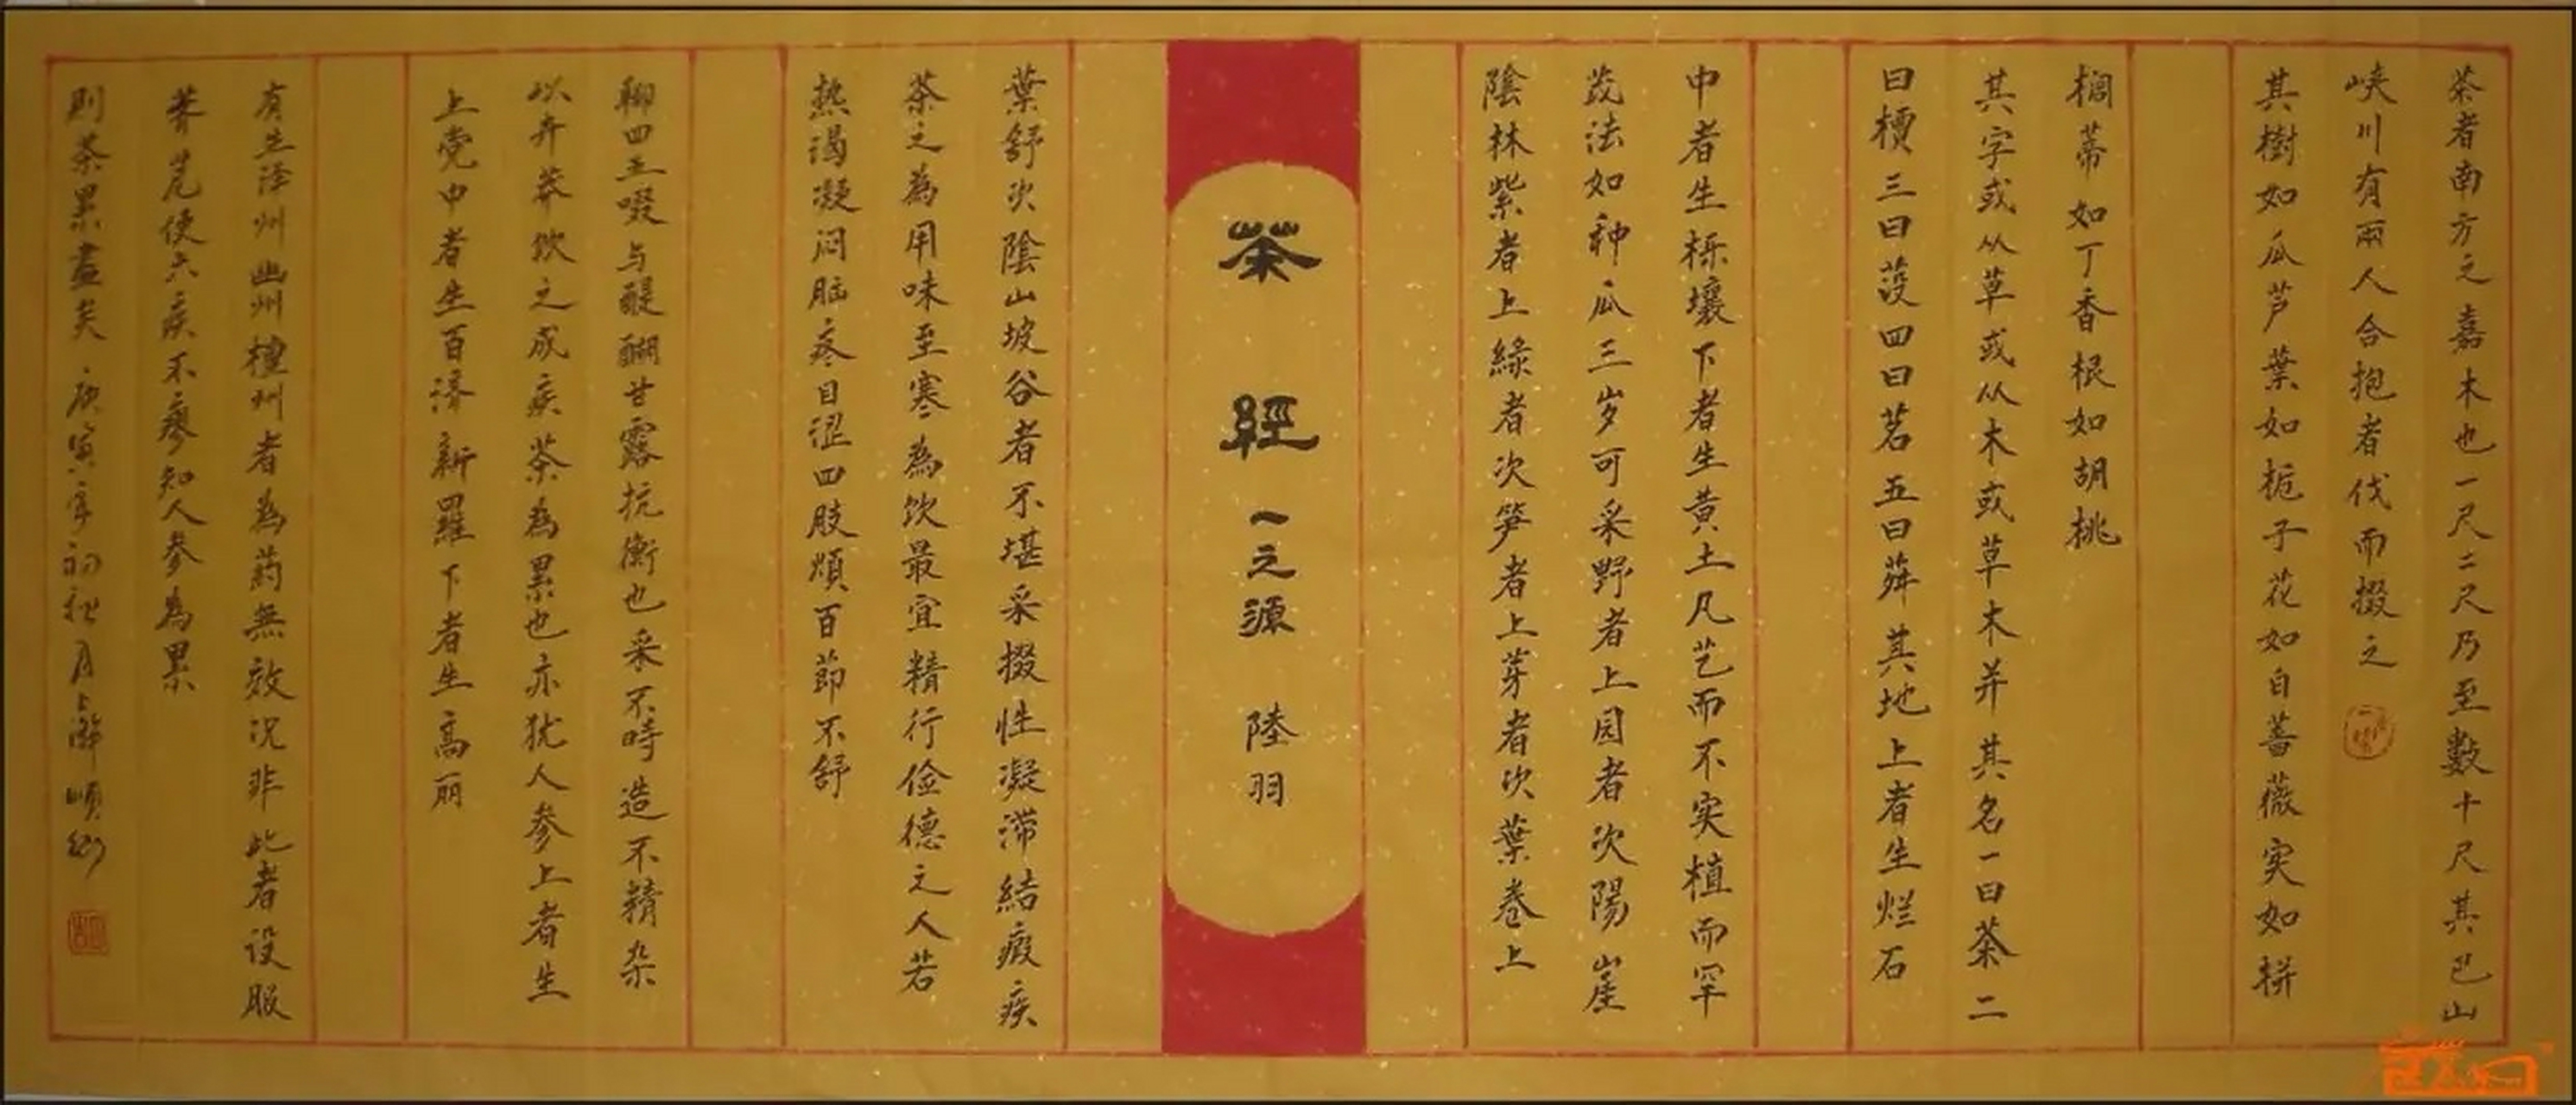 茶者南方之嘉木也一尺二尺乃至數十尺其巴山
峡川有兩人合抱者伐而掇之
其樹如瓜芦葉如栀子花如白蔷薇实如栟
榈蒂如丁香根如胡桃
其字或从草或从木或草木并其名一曰茶二
曰檟三曰蔎四曰茗五曰荈其地上者生烂石
中者生栎壤下者生黄土凡艺而不实植而罕
茂法如种瓜三岁可采野者上园者次陽崖
陰林紫者上綠者次笋者上芽者次葉卷上
茶經 一之源 陸羽
葉舒次陰山坡谷者不堪采掇性凝滞結瘕疾
茶之為用味至寒為饮最宜精行俭德之人若
热渴凝闷脑疼目涩四肢煩百節不舒
聊四五啜与醍醐甘露抗衡也采不時造不精杂
以卉莽饮之成疾茶為累也亦犹人参上者生
上党中者生百济新羅下者生高丽
有生泽州幽州檀州者為药無效况非此者设服
荠苨使六疾不瘳知人参為累
則茶累盡矣 庚寅年初秋月上澣順卿